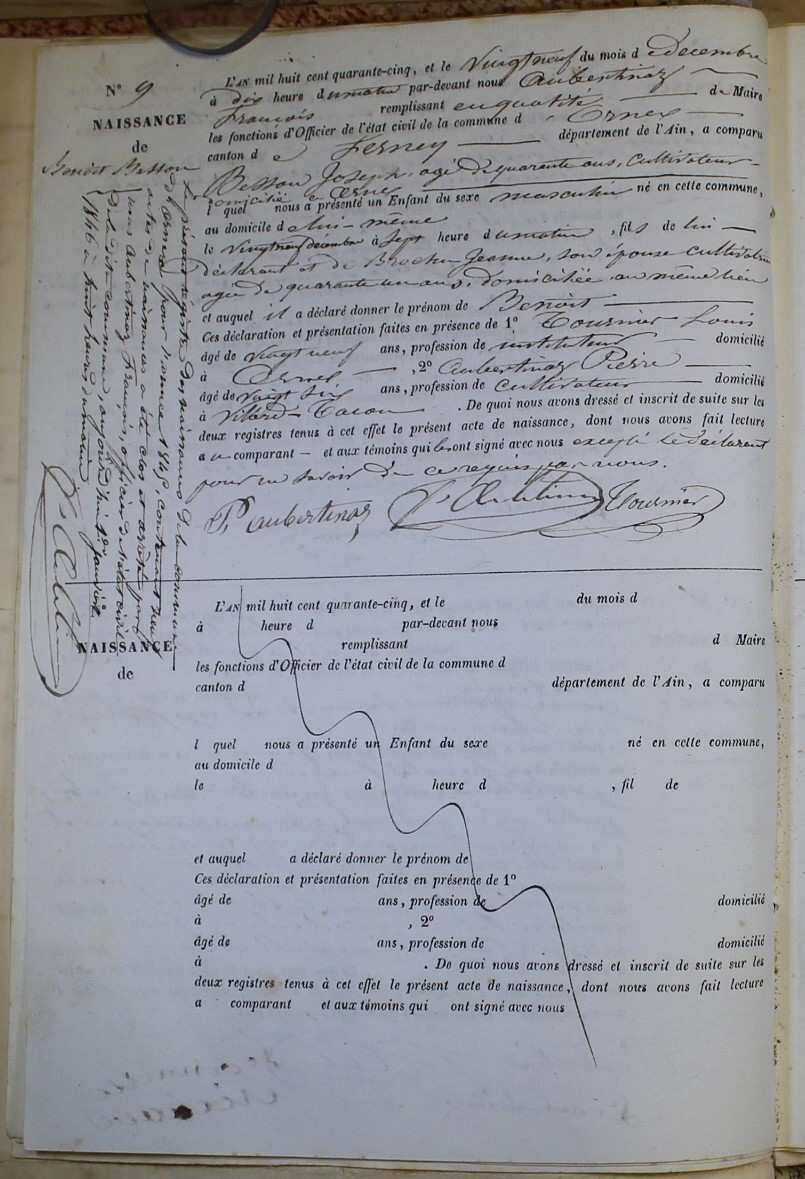 N° 9
NAISSANCE
de
Benoit Besson
L'AN mil huit cent quarante-cinq, et le Vingt neuf du mois d decembre
à dix heure du matin par-devant nous Aubertinaz
François remplissant en qualité de Maire
les fonctions d'Officier de l'état civil de la commune d'Ornex
canton de Ferney département de l'Ain, a comparu
Besson Joseph, agé de quarante ans, Cultivateur
domicilié a Ornex
lequel nous a présenté un Enfant du sexe masculin né en cette commune,
au domicile de lui-même
le Vingt neuf décembre à Sept heure du matin, fils de lui
déclarant et de Jeanne, son épouse cultivatrice
agée de quarante un ans, domiciliée au même lieu
et auquel il a déclaré donner le prénom de Benoit
Ces déclaration et présentation faites en présence de 1° Tournier Louis
âgé de vingt neuf ans, profession de instituteur domicilié
à Ornex, 2° Aubertinaz Pierre
âgé de vingt six ans, profession de cultivateur domicilié
à Villard-Tacon. De quoi nous avons dressé et inscrit de suite sur les
deux registres tenus à cet effet le présent acte de naissance, dont nous avons fait lecture
au comparant et aux témoins qui ont signé avec nous excepté le déclarant
pour ne savoir de ce requis par nous.
P Aubertinaz Tournier
Le présent registre des naissances de la commune
d'Ornex pour l'année 1845, contenant neuf
actes de naissances a été clos et arrêté par
nous Aubertinaz François, officier de l'état civil
de la dite commune, aujourd'hui 1er janvier
1846 à huit heures du matin
NAISSANCE
de
L'AN mil huit cent quarante-cinq, et le du mois d
à heure d par-devant nous
remplissant d Maire
les fonctions d'Officier de l'état civil de la commune d
canton d département de l'Ain, a comparu
l quel nous a présenté un Enfant du sexe né en cette commune,
au domicile d
le à heure d , fil de
et auquel a déclaré donner le prénom de
Ces déclaration et présentation faites en présence de 1°
âgé de ans, profession de domicilié
à , 2°
âgé de ans, profession de domicilié
à . De quoi nous avons dressé et inscrit de suite sur les
deux registres tenus à cet effet le présent acte de naissance, dont nous avons fait lecture
a comparant et aux témoins qui ont signé avec nous